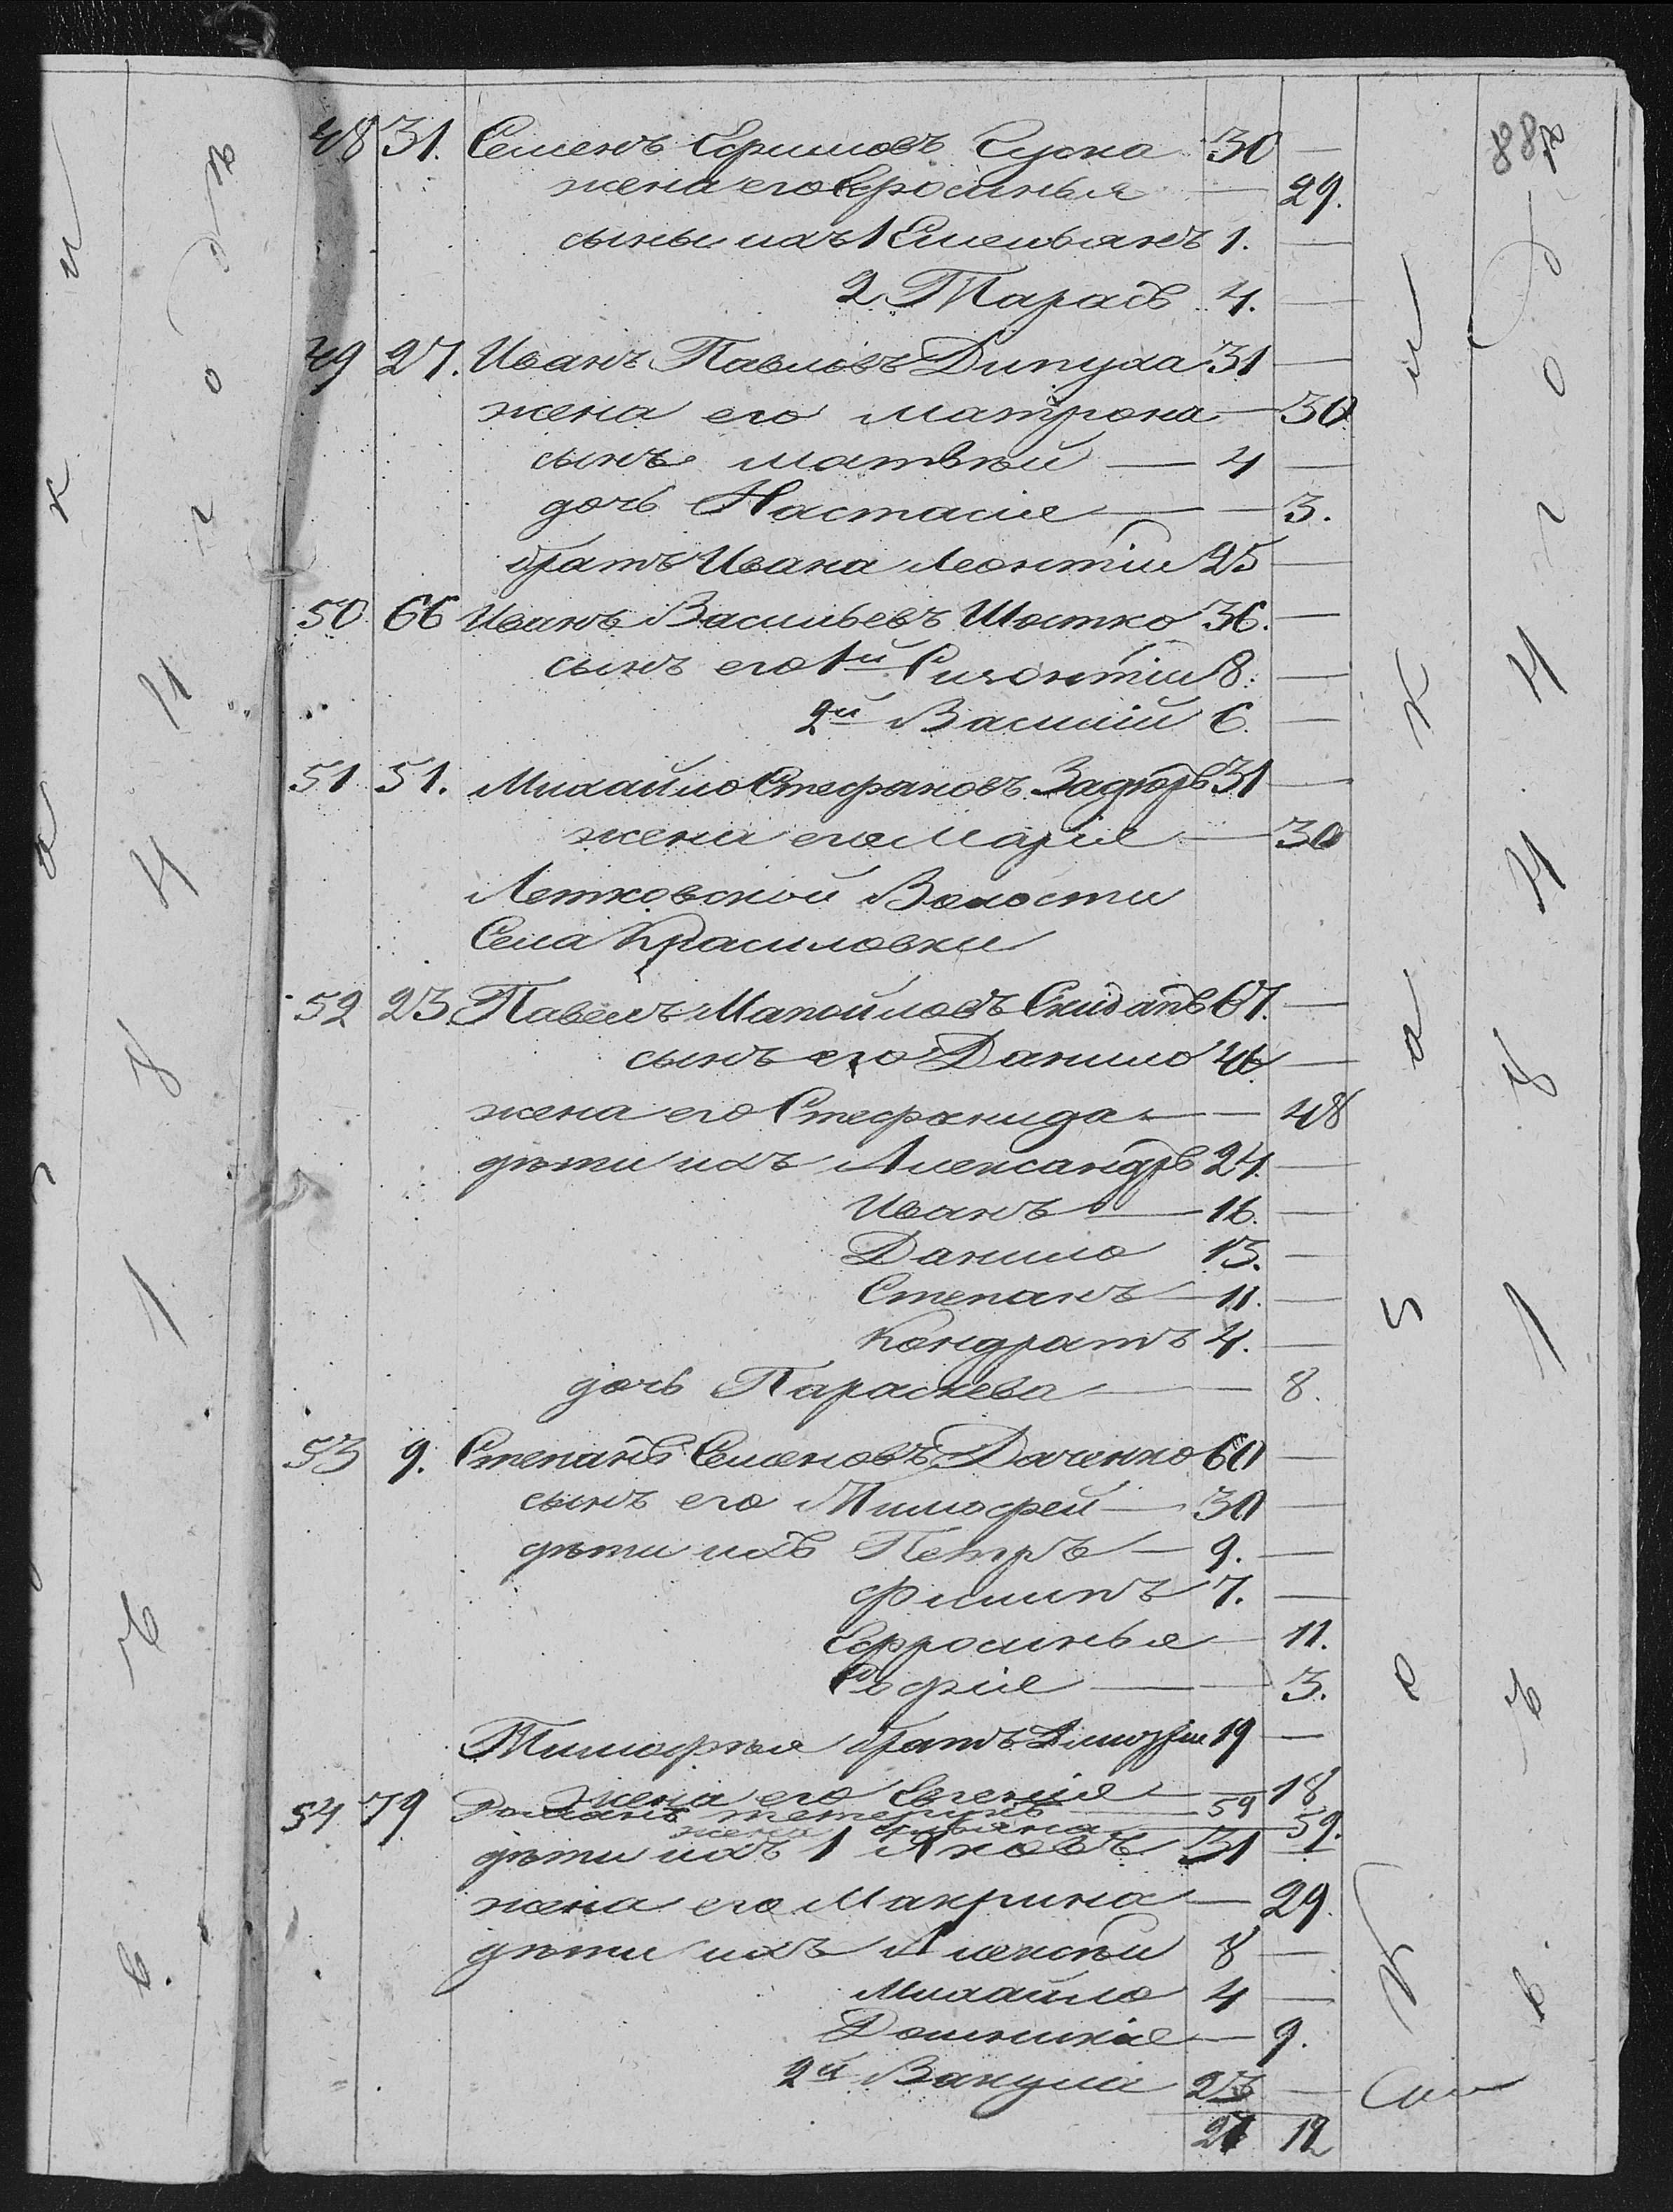 887
48 31. Семенъ Ефимовъ Суска 30 —
жена его Ефросинья — 29.
сыны ихъ 1 Емельянъ 1. —
2 Тарасъ 4. —
49 27. Иванъ Павловъ Дипуха 31 —
жена его Матрона — 30
сынъ Матвѣй — 4 —
дочь Настасія — 3.
братъ Ивана Леонтій 25 —
50 66 Иванъ Васильевъ Шостко 36. —
сынъ его 1й 8. —
2й Василій 6. —
51 51. Михайло Стефановъ 31 —
жена его Марія — 30
Летковской Волости
Села Красиловки
52 23. Павелъ Скиданъ 67. —
сынъ его Данило 46 —
жена его Стефанида — 48
дѣти ихъ Александръ 24. —
Иванъ — 16. —
Данило 13. —
Степанъ — 11. —
Кондратъ 4. —
дочь Параскева — 8.
53 9. Степанъ Семеновъ Даченко 60 —
сынъ его Тимофей — 30 —
дѣти ихъ Петръ — 9. —
Филипъ 7. —
Ефросинья — 11.
Софія — 3.
Тимофѣя братъ 19 —
жена его Евгенія — 18
54 79 Романъ — 59
жена — 59.
дѣти ихъ 1 Яковъ 31 —
жена его Макрина — 29.
дѣти ихъ Алексѣй 8 —
Михайло 4 —
Домникія — 9.
2й Вакула 23 —
27 12